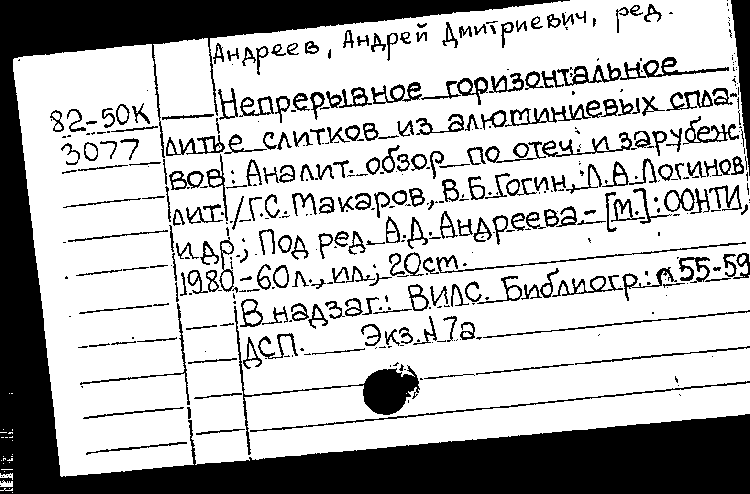 Андреев, Андрей Дмитриевич, ред.
82-50К
3077
Непрерывное горизонтальное
литье слитков из алюминиевых спла-
вов: Аналит. обзор по отеч. и зарубеж
лит. / Г.С. Макаров, В.Б. Гогин, Л.А. Логинов
и др.; Под ред. А.Д. Андреева.- [М.]: ООНТИ,
1980.-60л., ил.; 20см.
В надзаг.: ВИЛС. Библиогр.: л.55-59
ДСП. Экз.N7а